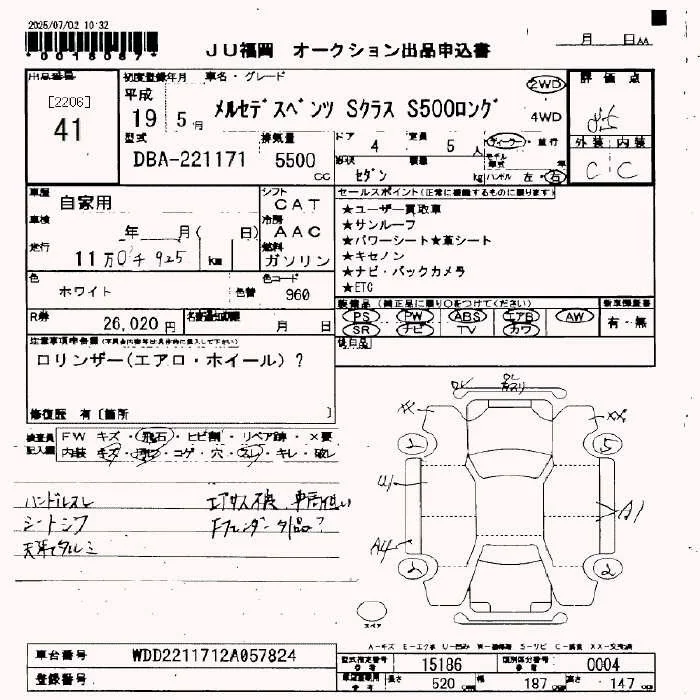 2025/07/02 10:32
*0018087*
JU福岡 オークション出品申込書
月 日
出品番号
初度登録年月
車名・グレード
評価点
[2206]
41
平成
19 5月
メルセデスベンツ Sクラス S500ロング
2WD
4WD
型式
排気量
ドア 4
定員 5人
ディーラー・並行
外装 内装
DBA-221171
5500 cc
形状
セダン
積載
kg
ハンドル 左・右
C C
車歴
自家用
シフト
CAT
セールスポイント(正常に機能するものに限ります)
車検
年 月( 日)
冷房
AAC
★ユーザー買取車
★サンルーフ
走行
11万0千925 km
燃料
ガソリン
★パワーシート★革シート
★キセノン
色
ホワイト
色替
色コード
960
★ナビ・バックカメラ
★ETC
装備品(純正品に限り○をつけてください)
R券
26,020円
月 日
PS PW ABS エアB AW
SR ナビ TV カワ
有・無
ロリンザー(エアロ・ホイール)?
後日品
修復歴 有[箇所 ]
検査員
記入欄
FW キズ・飛石・ヒビ割・リペア跡・×要
内装 キズ・コゲ・穴・スレ・キレ・破レ
ハンドルスレ
シートシワ
XX
XX
2
5
U1
A1
A4
2
2
スペア
車台番号
WDD2211712A057824
登録番号
型式指定番号
15186
類別区分番号
0004
長さ 520 cm
幅 187 cm
高さ 147 cm